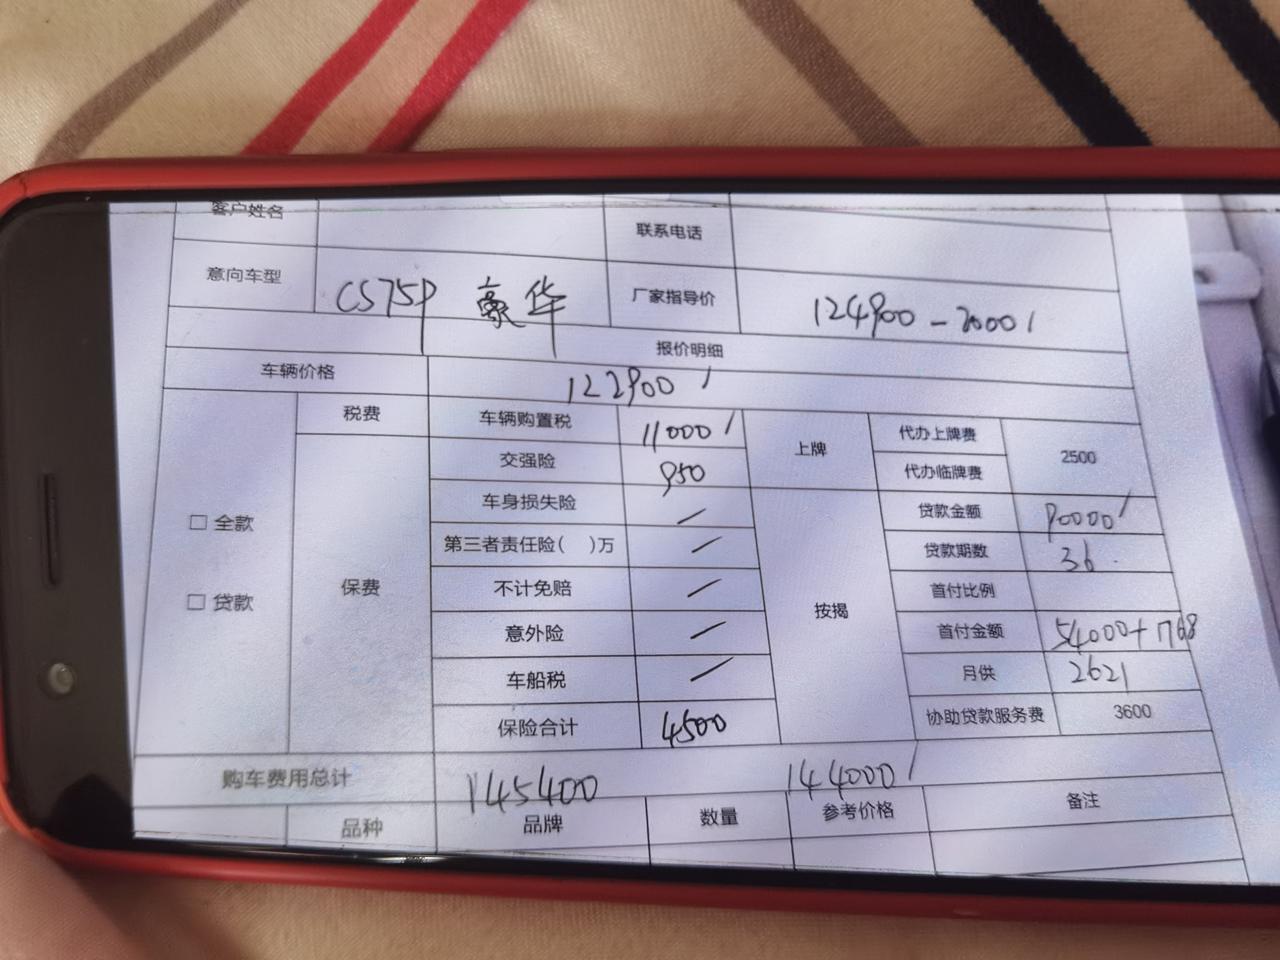 客户姓名 联系电话
意向车型 CS75P 豪华 厂家指导价 124900-2000
报价明细
车辆价格 122900
税费 车辆购置税 11000 上牌 代办上牌费 2500
交强险 950 代办临牌费
车身损失险 / 贷款金额 90000
第三者责任险( )万 / 贷款期数 36
□ 全款
保费 不计免赔 / 按揭 首付比例
□ 贷款
意外险 / 首付金额 54000+1768
车船税 / 月供 2621
保险合计 4500 协助贷款服务费 3600
购车费用总计 145400 144000
品种 品牌 数量 参考价格 备注